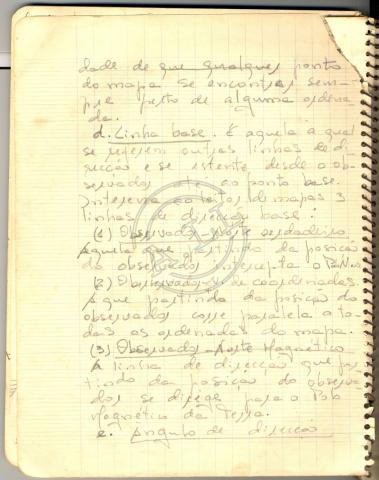 dade de que qualquer ponto
do mapa se encontras sem-
pre perto de alguma ordena
da.
d. Linha base. É aquela à qual
se referem outras linhas de di-
recção e se estente desde o ob-
servador até ao ponto base.
Interessa ao leitor de mapas 3
linhas de direcção base:
(1) Observador-Norte verdadeiro
Aquela que partindo da posição
do observador intercepta o
(2) Observador- de coordenadas.
A que partindo da posição do
observador corre paralela a to-
das as ordenadas do mapa.
(3) Observador-Norte Magnético
A linha de direcção que par
tindo da posição do observa-
dor se dirige para o Polo
Magnético da Terra.
e. Angulo de direcção